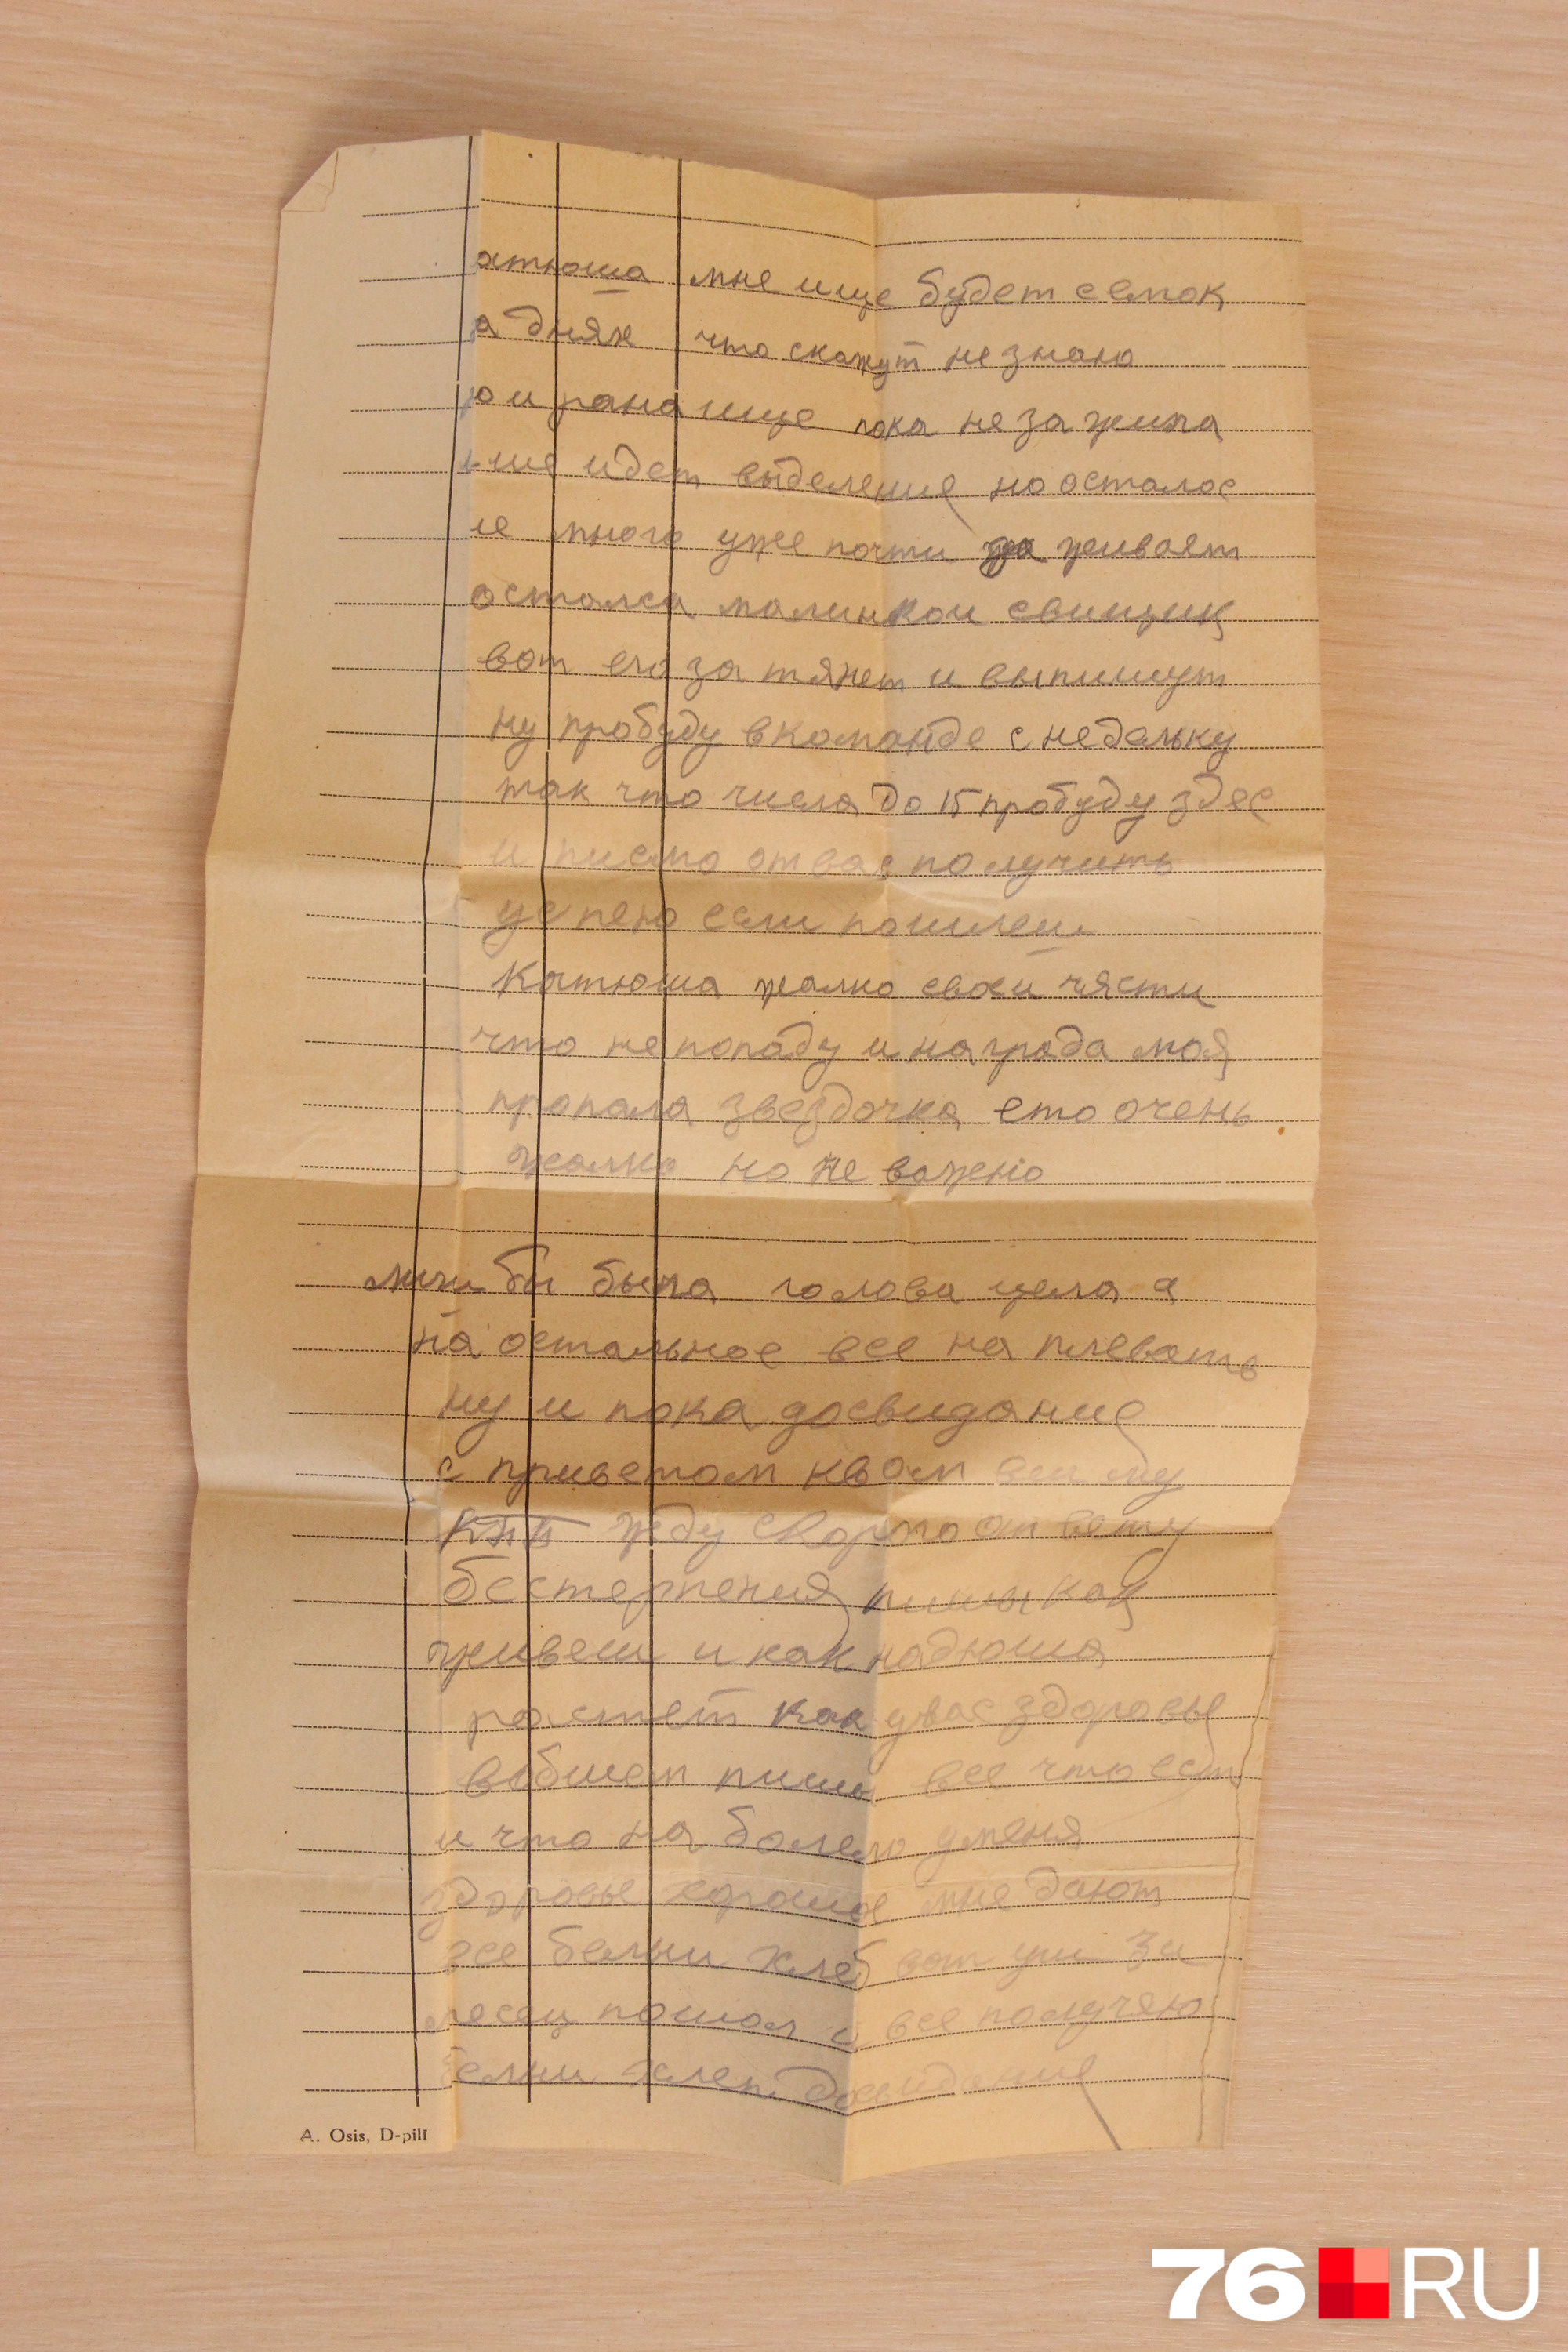 атюша мне ище будет семок
а днях что скажут не знаю
ю и рана ище пока не за жила
идет выделение но осталос
не много уже почти за живает
осталса малинкои свищик
вот его за тянет и выпишут
ну пробуду в команде с недельку
так что числа до 15 пробуду здес
и писмо от вас получить
успею если пошлеш
Катюша жалко свои части
что не попаду и награда моя
пропала звездочка ето очень
жалко но не важно
лиш бы была голова цела а
на остальное все на плевать
ну и пока досвидание
с приветом к вам
КНП жду скорого ответу
бестерпения пишы как
живеш и как надюша
растет как у вас здоровье
вобшем пишы все что ест
и что на болело у меня
здоровье хорошое мне дают
все белыи хлеб вот уш за
месец пошол и все получею
белыи хлеп досвидание
A. Osis, D-pilī
76 RU